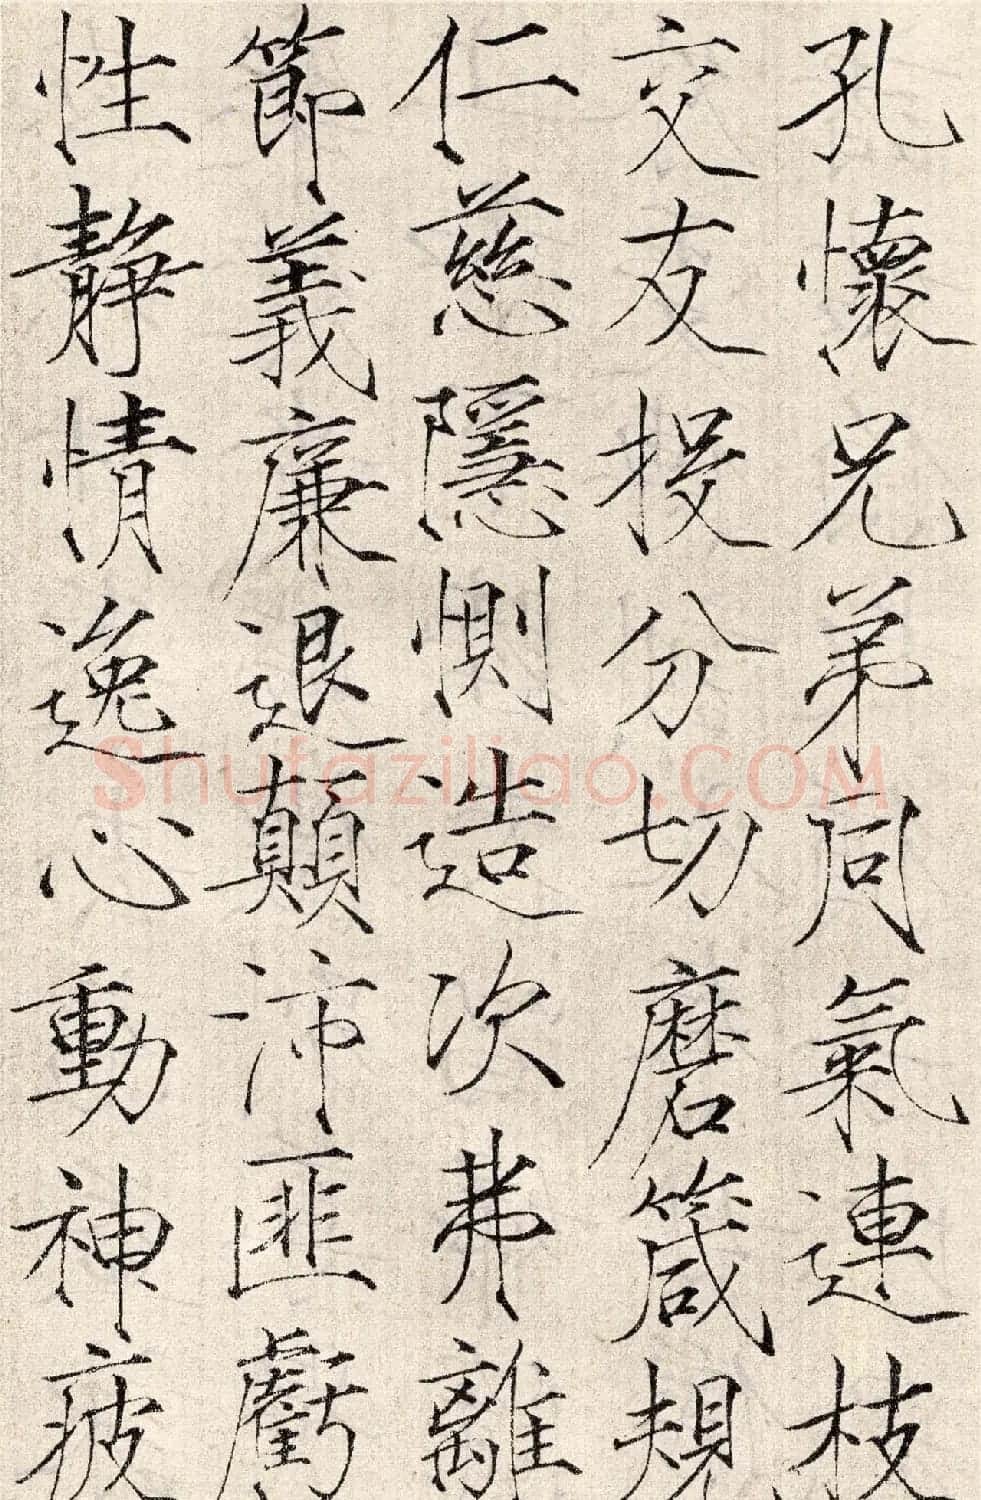 孔懷兄弟同氣連枝
交友投分切磨箴規
仁慈隱惻造次弗離
節義廉退顛沛匪虧
性靜情逸心動神疲
Shufaziliao.COM